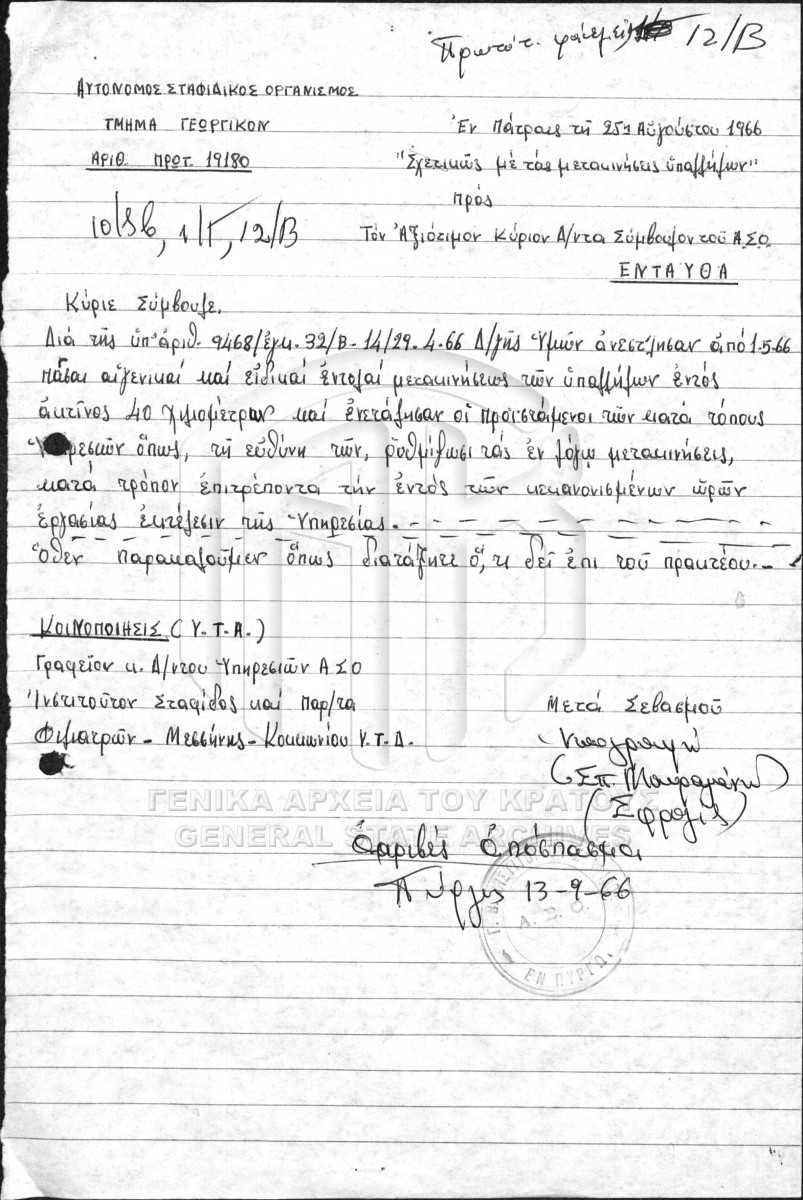 Πρωτότ. 12/Β
ΑΥΤΟΝΟΜΟΣ ΣΤΑΦΙΔΙΚΟΣ ΟΡΓΑΝΙΣΜΟΣ
ΤΜΗΜΑ ΓΕΩΡΓΙΚΟΝ
ΑΡΙΘ. ΠΡΩΤ. 19180
Ἐν Πάτραις τῇ 25ῃ Αὐγούστου 1966
"Σχετικῶς μὲ τὰς μετακινήσεις ὑπαλλήλων"
πρὸς
10/3b, 1/Γ, 12/Β
Τὸν Ἀξιότιμον Κύριον Δ/ντα Σύμβουλον τοῦ Α.Σ.Ο.
ΕΝΤΑΥΘΑ
Κύριε Σύμβουλε,
Διὰ τῆς ὑπ' ἀριθ. 9468/ἐγκ. 32/Β-14/29.4.66 Δ/γῆς Ὑμῶν ἀνεστάλησαν ἀπὸ 1-5-66
πᾶσαι αἱ γενικαὶ καὶ εἰδικαὶ ἐντολαὶ μετακινήσεως τῶν ὑπαλλήλων ἐντὸς
ἀκτῖνος 40 χιλιομέτρων καὶ ἐνετάλησαν οἱ προϊστάμενοι τῶν κατὰ τόπους
Ὑπηρεσιῶν ὅπως, τῇ εὐθύνῃ των, ρυθμίζωσι τὰς ἐν λόγῳ μετακινήσεις,
κατὰ τρόπον ἐπιτρέποντα τὴν ἐντὸς τῶν κεκανονισμένων ὡρῶν
ἐργασίας ἐκτέλεσιν τῆς Ὑπηρεσίας. - - - - - - - - - - - -
Ὅθεν παρακαλοῦμεν ὅπως διατάξητε ὅ,τι δεῖ ἐπὶ τοῦ πρακτέου.-
ΚΟΙΝΟΠΟΙΗΣΙΣ (Υ.Τ.Α.)
Γραφεῖον κ. Δ/ντοῦ Ὑπηρεσιῶν ΑΣΟ
Ἰνστιτοῦτον Σταφίδος καὶ Παρ/τα
Φιλιατρῶν - Μεσσήνης - Κοκκωνίου Υ.Τ.Δ.
Μετὰ Σεβασμοῦ
Ὑπογραφὴ
(Σπ. Μαυραγάνη)
(Σφραγὶς)
Ἀκριβὲς Ἀπόσπασμα
Πύργος 13-9-66
Α.Σ.Ο.
ΕΝ ΠΥΡΓΩ
ΓΕΝΙΚΑ ΑΡΧΕΙΑ ΤΟΥ ΚΡΑΤΟΥΣ
GENERAL STATE ARCHIVES